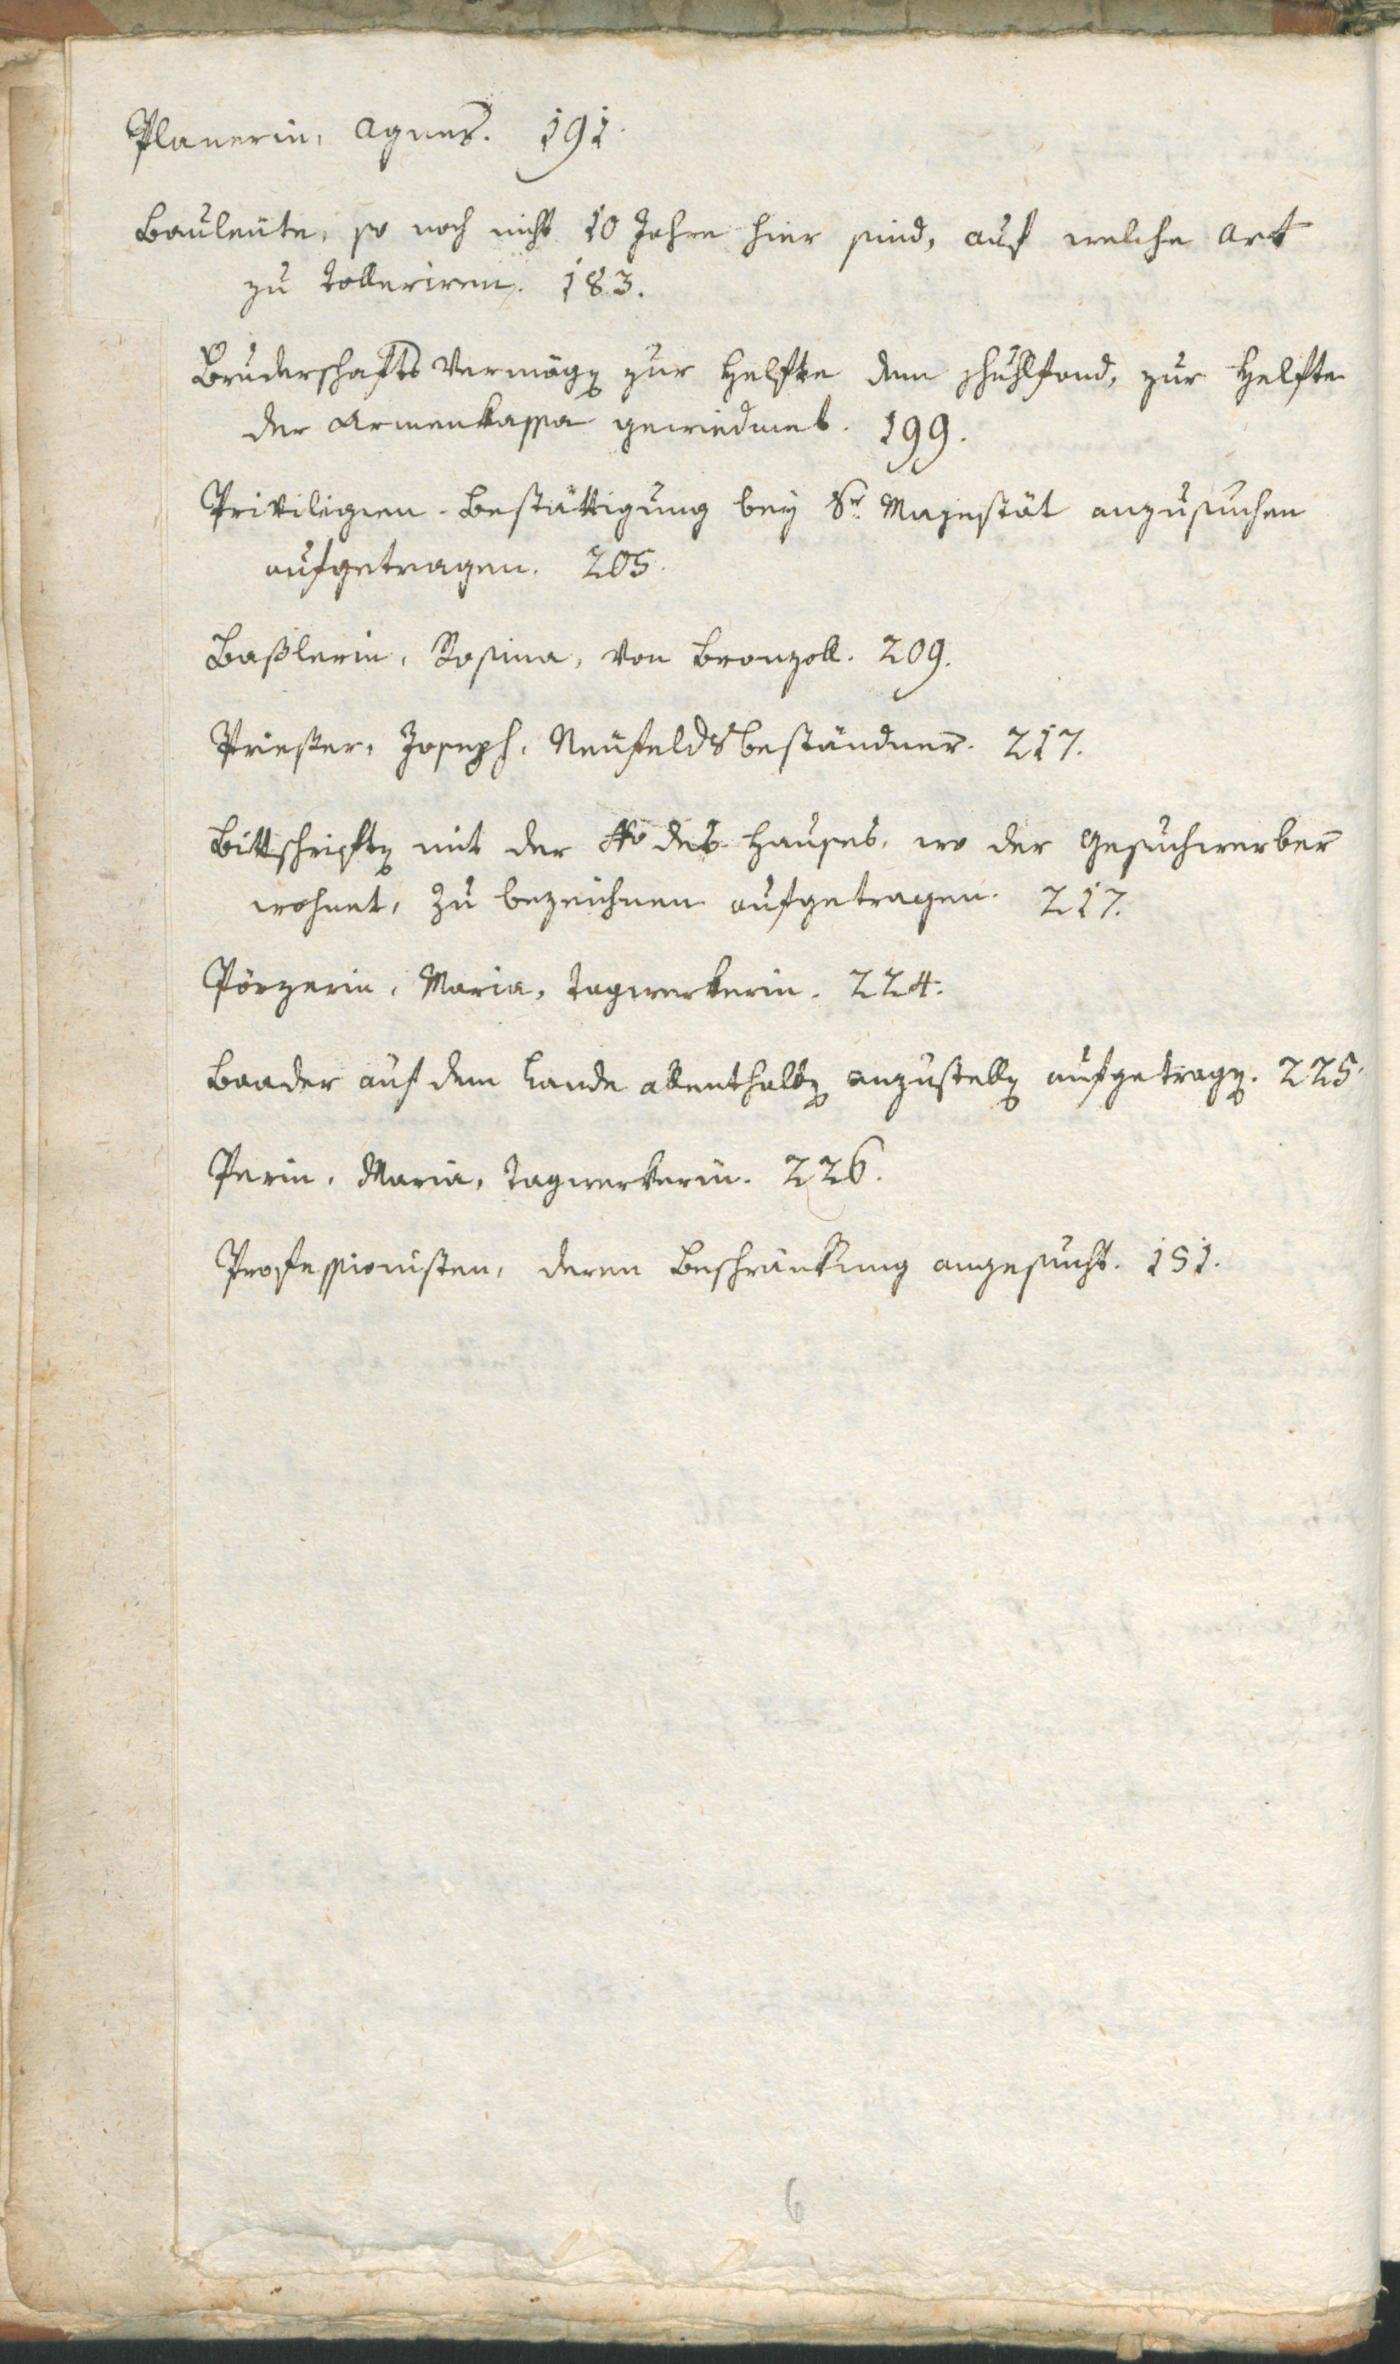 Planerin, Agnes. 191.
Bauleüte, so noch nicht 10 Jahre hier sind, auf welche Art
zu tolleriren. 183.
Bruderschafts Vermögen zur Helfte dem Schuhlfond, zur Helfte
der Armenkassa gewiedmet. 199.
Privilegien-Bestättigung beÿ Sr. Majestät anzusuchen
aufgetragen. 205.
Baßlerin, Rosina, von Bronzoll. 209.
Prießer, Joseph, Neüfeldsbeständner. 217.
Bittschriften mit der No des Hauses, wo der Gesuchwerber
wohnet, zu bezeichnen aufgetragen. 217.
Pörzerin, Maria, Tagwerkerin. 224.
Baader auf dem Lande allenthalben anzustellen aufgetragen. 225.
Perin, Maria, Tagwerkerin. 226.
Professionisten, deren Beschränkung angesucht. 151.
6